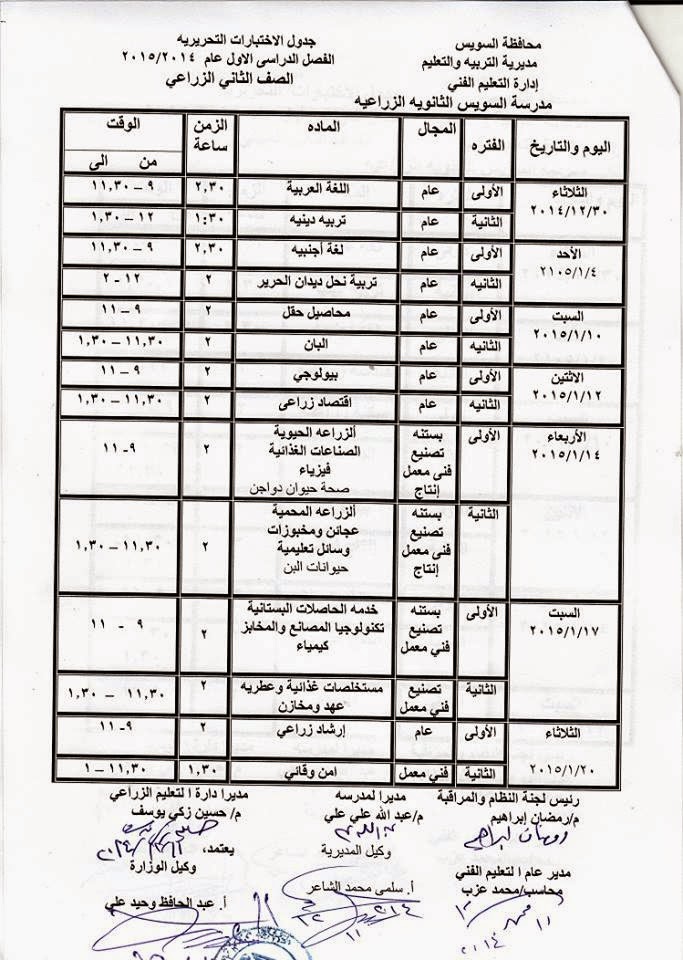 محافظة السويس
مديرية التربيه والتعليم
إدارة التعليم الفني
مدرسة السويس الثانويه الزراعيه
جدول الاختبارات التحريريه
الفصل الدراسى الاول عام ٢٠١٥/٢٠١٤
الصف الثاني الزراعي
اليوم والتاريخ الفتره المجال الماده الزمن ساعة الوقت من الى
الثلاثاء ٢٠١٤/١٢/٣٠ الأولى عام اللغة العربية ٢,٣٠ ٩ – ١١,٣٠
الثانية عام تربيه دينيه ١:٣٠ ١٢ – ١,٣٠
الأحد ٢١٠٥/١/٤ الأولى عام لغة أجنبيه ٢,٣٠ ٩ – ١١,٣٠
الثانيه عام تربية نحل ديدان الحرير ٢ ١٢ - ٢
السبت ٢٠١٥/١/١٠ الأولى عام محاصيل حقل ٢ ٩ – ١١
الثانيه عام البان ٢ ١١,٣٠ – ١,٣٠
الاثنين ٢٠١٥/١/١٢ الأولى عام بيولوجي ٢ ٩ – ١١
الثانيه عام اقتصاد زراعى ٢ ١١,٣٠ – ١,٣٠
الأربعاء ٢٠١٥/١/١٤ الأولى بستنه الزراعه الحيوية ٢ ٩- ١١
تصنيع الصناعات الغذائية
فنى معمل فيزياء
إنتاج صحة حيوان دواجن
الثانية بستنه الزراعه المحمية ٢ ١١,٣٠ – ١,٣٠
تصنيع عجائن ومخبوزات
فنى معمل وسائل تعليمية
إنتاج حيوانات البن
السبت ٢٠١٥/١/١٧ الأولى بستنه خدمه الحاصلات البستانية ٢ ٩ - ١١
تصنيع تكنولوجيا المصانع والمخابز
فني معمل كيمياء
الثانية تصنيع مستخلصات غذائية وعطريه ٢ ١١,٣٠ – ١,٣٠
فني معمل عهد ومخازن
الثلاثاء ٢٠١٥/١/٢٠ الأولى عام إرشاد زراعي ٢ ٩- ١١
الثانية فني معمل امن وقائي ١,٣٠ ١١,٣٠ – ١
رئيس لجنة النظام والمراقبة مديرا لمدرسه مديرا دارة ا لتعليم الزراعي
م/رمضان إبراهيم م/عبد الله علي علي م/ حسين زكي يوسف
رمضان ابراهيم
وكيل المديرية يعتمد،
وكيل الوزارة
مدير عام ا لتعليم الفني
محاسب/محمد عزب أ. سلمى محمد الشاعر أ. عبد الحافظ وحيد علي